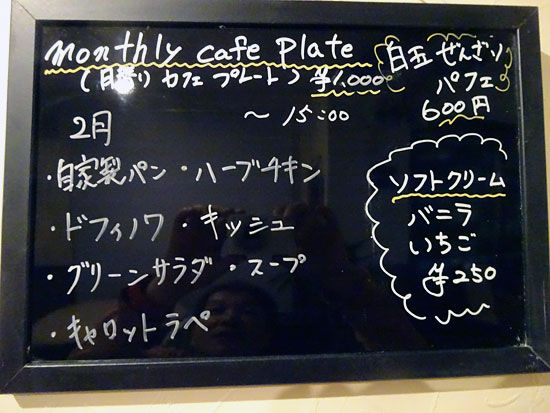 monthly cafe Plate
(月替り カフェ プレート) ¥1,000
〜 15:00
2月
・自家製パン ・ハーブチキン
・ドフィノワ ・キッシュ
・グリーンサラダ ・スープ
・キャロットラペ
白玉ぜんざい
パフェ
600円
ソフトクリーム
バニラ
いちご
¥250